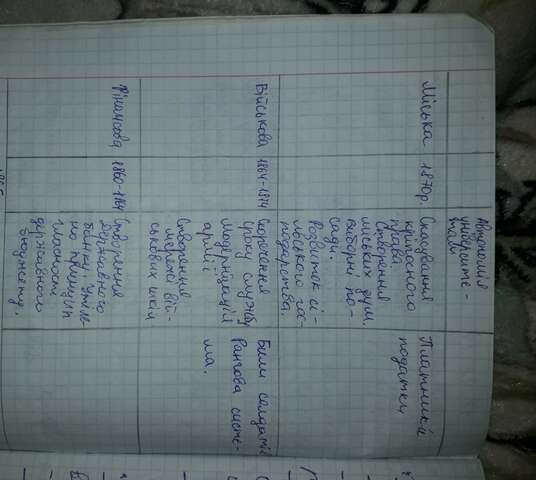 Автономія
університе-
тів
Міська
1870р.
Скасування
кріпасного
права
Створення
міських дум.
виборні по-
сади.
Розвиток сі-
льського гос-
подарства.
Платники
податки
Військова
1864-1874
Скорочення
строку служби
Модернізація
армії
Створення
мережі вій-
ськових шкіл
Били солдатів
Рангова систе-
ма.
Фінансова
1860-1864
Створення
Державного
банку
но принцип
гласності
державного
бюджету.